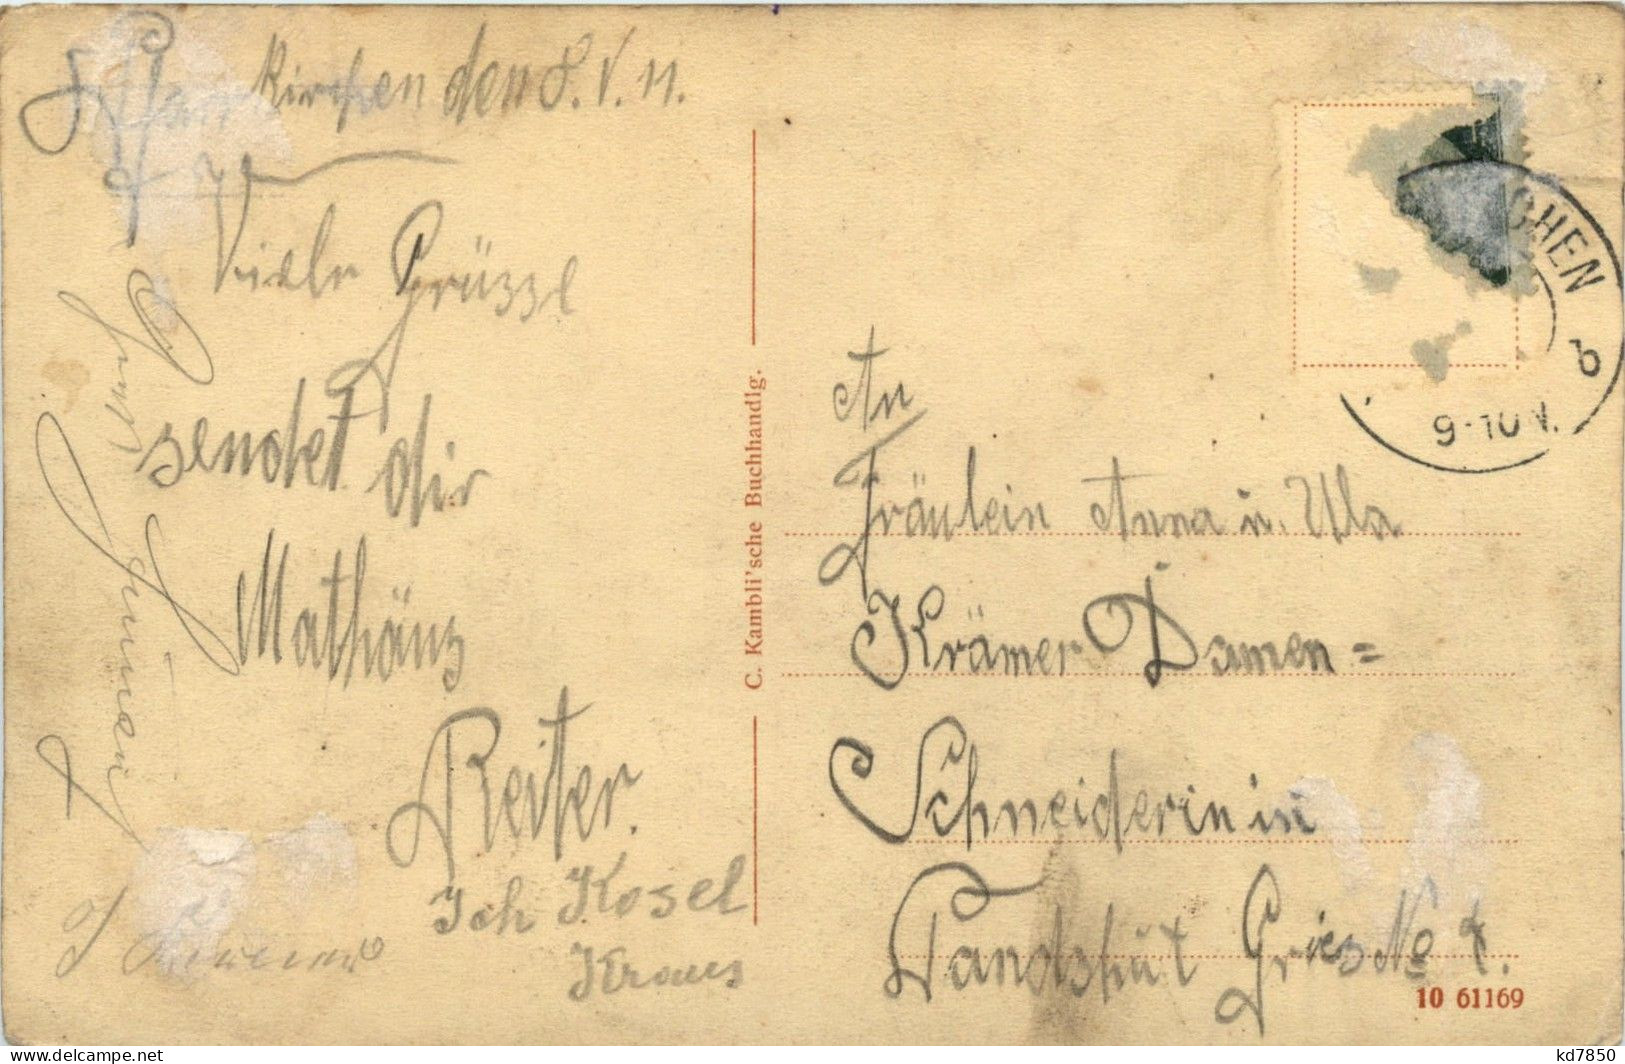 Pfarrkirchen den 8. V. 11.
Viele Grüsse
sendet dir
Mathäus
Reiter.
Joh Kosel
Kraus
C. Kambli'sche Buchhandlg.
CHEN
b
9-10 V.
An
Fräulein Anna u.
Krämer Damen=
Schneiderin in
Landshut Gries No
10 61169
Privatsammlung AK-Ansichtskarten.de
kd7850